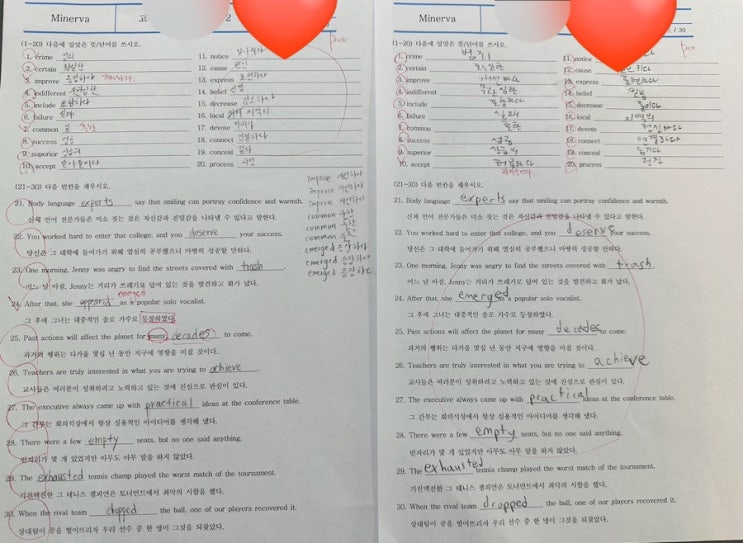 Minerva
2
(1~20) 다음에 알맞은 뜻/단어를 쓰시오.
1. crime
2. certain 확실한
3. improve
4. indifferent 무관심한
5. include 포함하다
6. failure 실패
7. common
8. success 성공
9. superior
10. accept 받아들이다
11. notice 알아채다
12. cause 원인
13. express 표현하다
14. belief 신념
15. decrease 감소하다
16. local 지역의
17. devote
18. connect 연결하다
19. conceal
20. process
(21~30) 다음 빈칸을 채우시오.
improve
improve
improve
common
common
common
emerged 등장하다
emerged 등장하다
emerged 등장하다
21. Body language experts say that smiling can portray confidence and warmth.
신체 언어 전문가들은 미소 짓는 것은 자신감과 친밀감을 나타낼 수 있다고 말한다.
22. You worked hard to enter that college, and you deserve your success.
당신은 그 대학에 들어가기 위해 열심히 공부했으니 마땅히 성공할 만하다.
23. One morning, Jenny was angry to find the streets covered with trash.
어느 날 아침, Jenny는 거리가 쓰레기로 덮여 있는 것을 발견하고 화가 났다.
emerged
24. After that, she as a popular solo vocalist.
그 후에 그녀는 대중적인 솔로 가수로 등장하였다.
25. Past actions will affect the planet for many decades to come.
과거의 행위는 다가올 몇십 년 동안 지구에 영향을 미칠 것이다.
26. Teachers are truly interested in what you are trying to achieve.
교사들은 여러분이 성취하려고 노력하고 있는 것에 진심으로 관심이 있다.
27. The executive always came up with practical ideas at the conference table.
그 간부는 회의석상에서 항상 실용적인 아이디어를 생각해 냈다.
28. There were a few empty seats, but no one said anything.
빈자리가 몇 개 있었지만 아무도 아무 말을 하지 않았다.
29. The exhausted tennis champ played the worst match of the tournament.
기진맥진한 그 테니스 챔피언은 토너먼트에서 최악의 시합을 했다.
30. When the rival team dropped the ball, one of our players recovered it.
상대팀이 공을 떨어뜨리자 우리 선수 중 한 명이 그것을 되찾았다.
Minerva
/ 30
(1~20) 다음에 알맞은 뜻/단어를 쓰시오.
1. crime 범죄
2. certain
3. improve
4. indifferent 무관심한
5. include 포함하다
6. failure 실패
7. common
8. success 성공
9. superior
10. accept
11. notice
12. cause
13. express 표현하다
14. belief 믿음
15. decrease 줄이다
16. local 지역의
17. devote 헌신하다
18. connect 연결하다
19. conceal 숨기다
20. process
(21~30) 다음 빈칸을 채우시오.
21. Body language experts say that smiling can portray confidence and warmth.
신체 언어 전문가들은 미소 짓는 것은 자신감과 친밀감을 나타낼 수 있다고 말한다.
22. You worked hard to enter that college, and you deserve your success.
당신은 그 대학에 들어가기 위해 열심히 공부했으니 마땅히 성공할 만하다.
23. One morning, Jenny was angry to find the streets covered with trash
어느 날 아침, Jenny는 거리가 쓰레기로 덮여 있는 것을 발견하고 화가 났다.
24. After that, she emerged as a popular solo vocalist.
그 후에 그녀는 대중적인 솔로 가수로 등장하였다.
25. Past actions will affect the planet for many decades to come.
과거의 행위는 다가올 몇십 년 동안 지구에 영향을 미칠 것이다.
26. Teachers are truly interested in what you are trying to achieve
교사들은 여러분이 성취하려고 노력하고 있는 것에 진심으로 관심이 있다.
27. The executive always came up with practical ideas at the conference table.
그 간부는 회의석상에서 항상 실용적인 아이디어를 생각해 냈다.
28. There were a few empty seats, but no one said anything.
빈자리가 몇 개 있었지만 아무도 아무 말을 하지 않았다.
29. The exhausted tennis champ played the worst match of the tournament.
기진맥진한 그 테니스 챔피언은 토너먼트에서 최악의 시합을 했다.
30. When the rival team dropped the ball, one of our players recovered it.
상대팀이 공을 떨어뜨리자 우리 선수 중 한 명이 그것을 되찾았다.